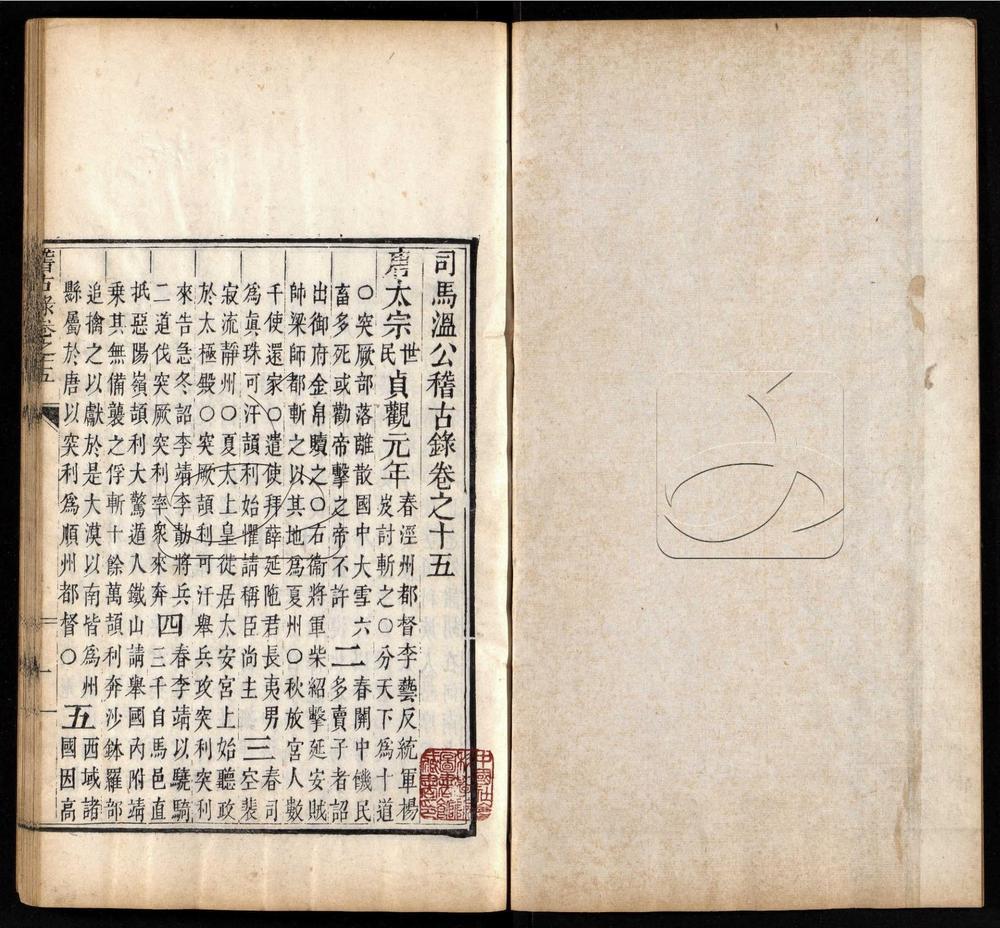 司馬溫公稽古錄卷之十五
唐太宗世民貞觀元年春涇州都督李藝反統軍楊
岌討斬之〇分天下爲十道
〇突厥部落離散國中大雪六
畜多死或勸帝擊之帝不許
二春關中饑民
多賣子者詔
出御府金帛贖之〇右衞將軍柴紹擊延安賊
師梁師都斬之以其地爲夏州〇秋放宮人數
千使還家〇遣使拜薛延陁君長夷男
爲眞珠可汗頡利始懼請稱臣尚主
三春司
空裴
寂流靜州〇夏太上皇徙居太安宮上始聽政
於太極殿〇突厥頡利可汗舉兵攻突利突利
來告急冬詔李靖李勣將兵
二道伐突厥突利率衆來奔
四春李靖以驍騎
三千自馬邑直
抵惡陽嶺頡利大驚遁人鐵山請舉國內附靖
乘其無備襲之俘斬十餘萬頡利奔沙鉢羅部
追擒之以獻於是大漠以南皆爲州
縣屬於唐以突利爲順州都督〇
五西域諸
國因高
稽古錄卷之十五
一